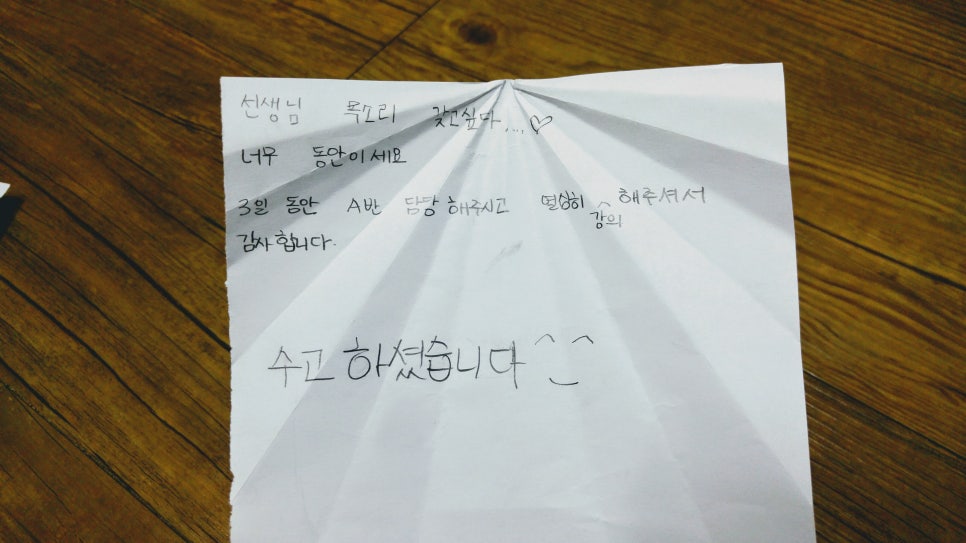 선생님 목소리 갖고싶다....♡
너무 동안이세요
3일 동안 A반 담당 해주시고 열심히 강의 해주셔서
감사합니다.
수고 하셨습니다 ^_^